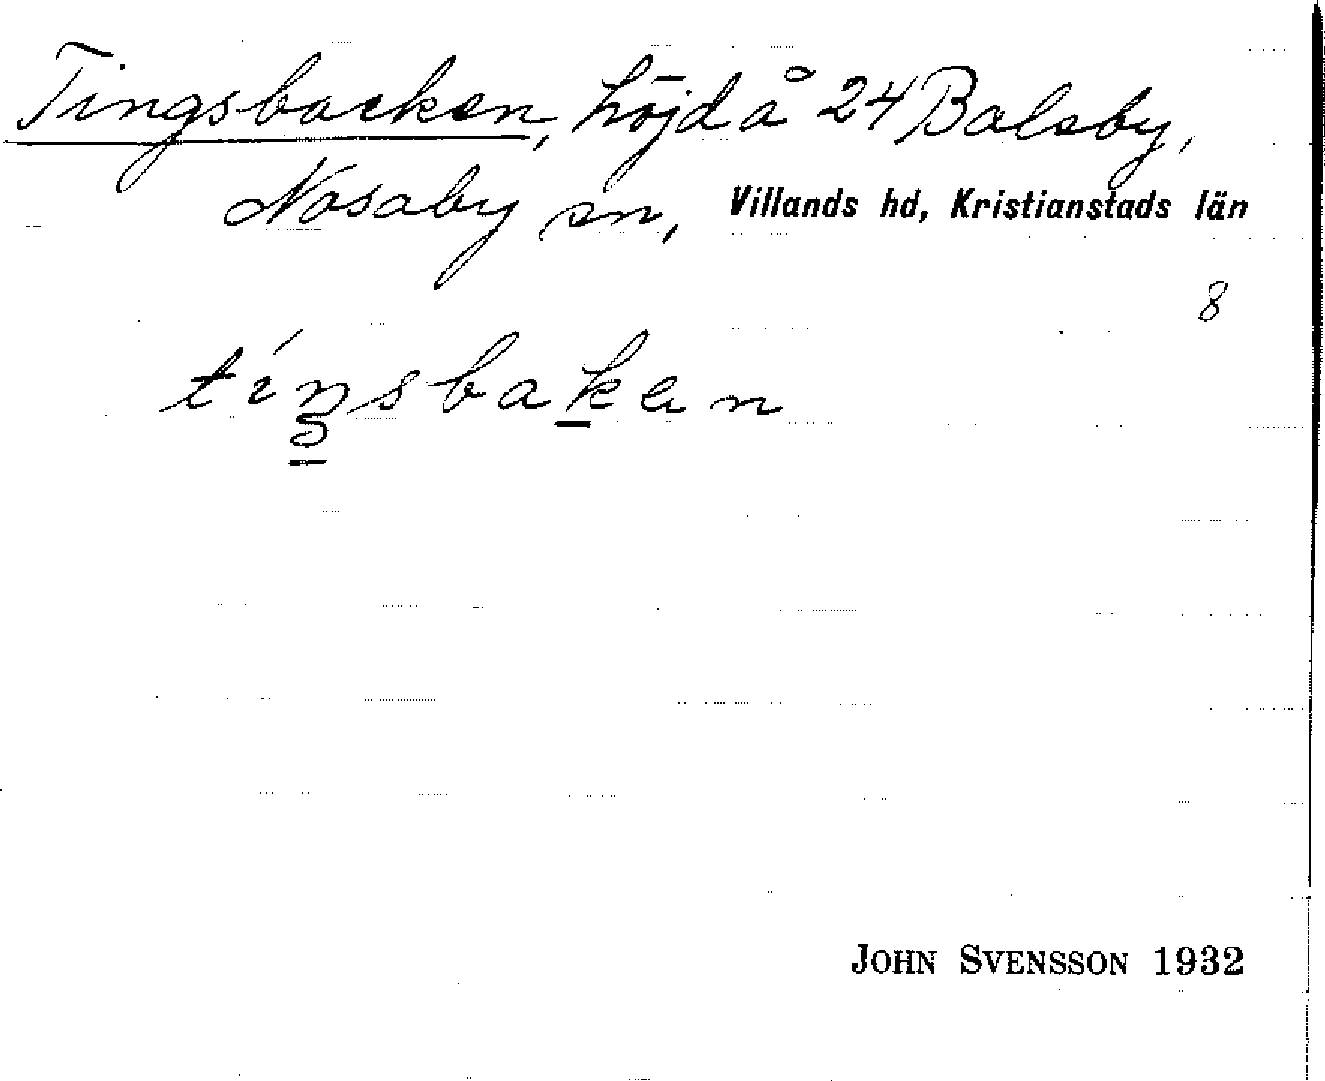 Tingsbacken, höjd å 24 Balsby,
Nosaby sn, Villands hd, Kristianstads län
8
tíŋsbaken
JOHN SVENSSON 1932